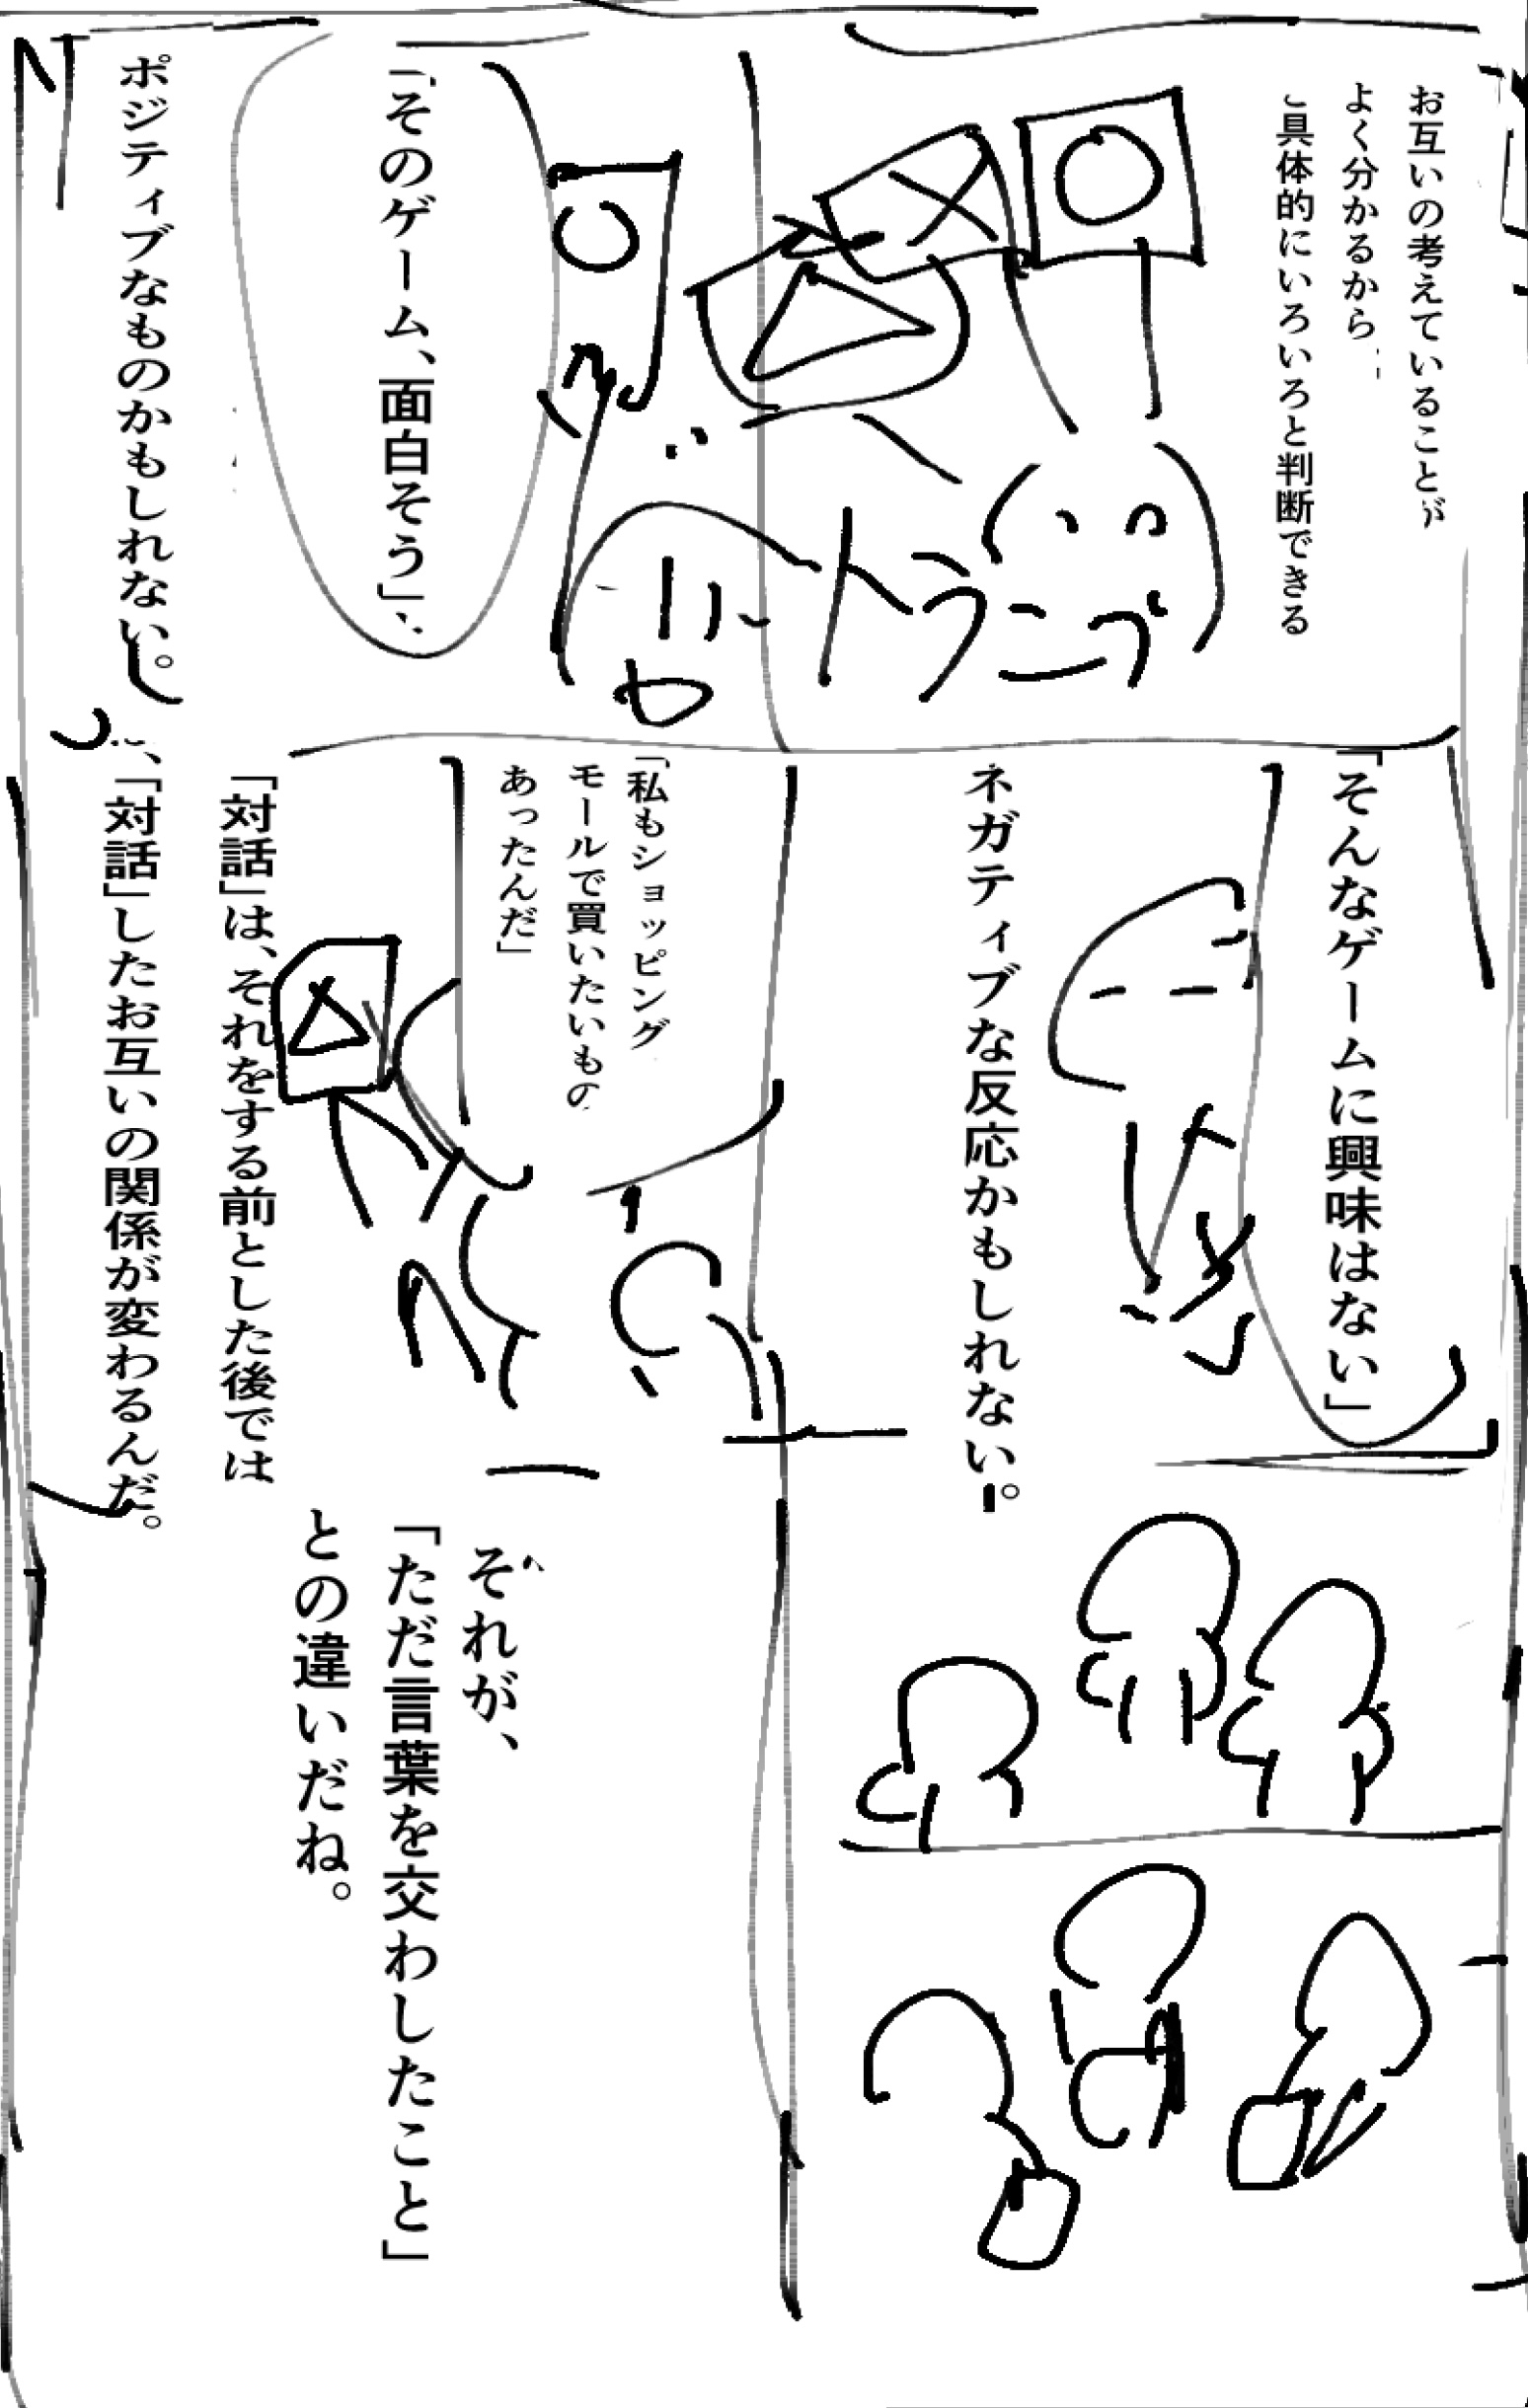 お互いの考えていることが
よく分かるから
具体的にいろいろと判断できる
「そのゲーム、面白そう」
ポジティブなものかもしれない。
「そんなゲームに興味はない」
ネガティブな反応かもしれない。
「私もショッピング
モールで買いたいもの
あったんだ」
「対話」は、それをする前とした後では
、「対話」したお互いの関係が変わるんだ。
それが、
「ただ言葉を交わしたこと」
との違いだね。